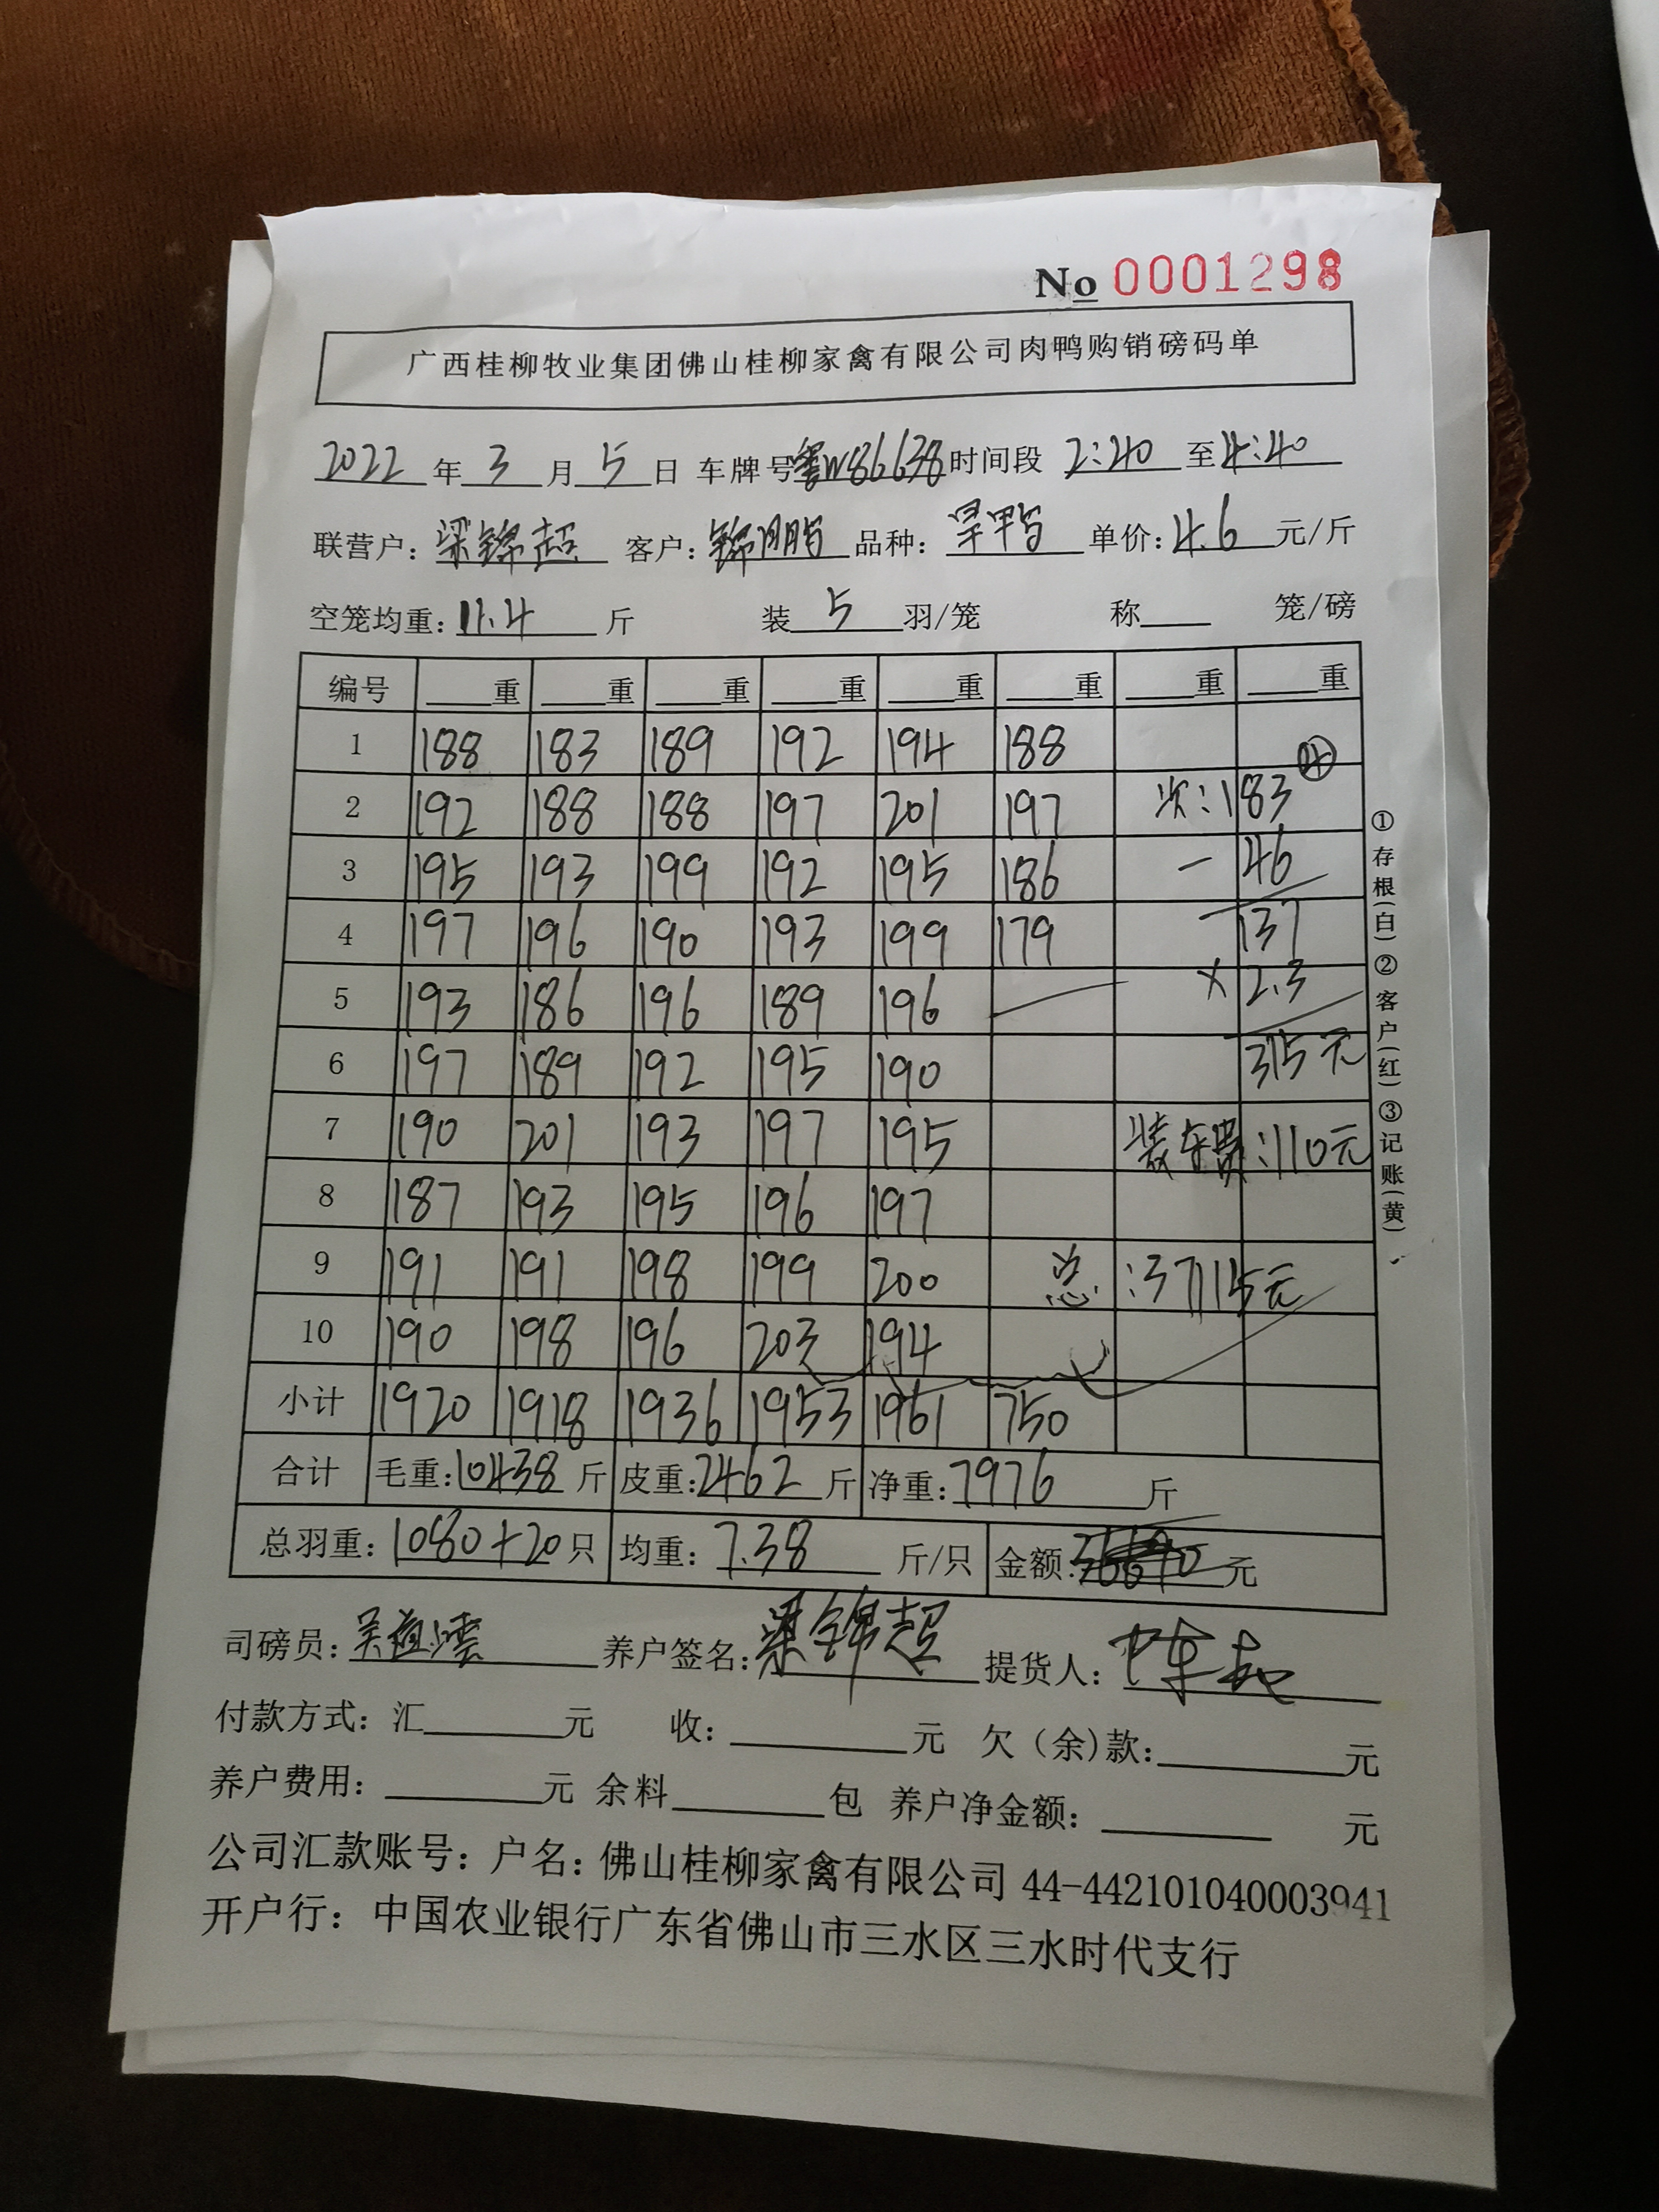 No 0001298
广西桂柳牧业集团佛山桂柳家禽有限公司肉鸭购销磅码单
2022 年 3 月 5 日 车牌号 粤W86638 时间段 2:40 至 4:40
联营户: 梁锦超 客户: 锦鹏 品种: 旱鸭 单价: 4.6 元/斤
空笼均重: 11.4 斤 装 5 羽/笼 称 笼/磅
编号 重 重 重 重 重 重 重 重
1 188 183 189 192 194 188 ④
2 192 188 188 197 201 197 次: 183
3 195 193 199 192 195 186 - 46
4 197 196 190 193 199 179 137
5 193 186 196 189 196 × 2.3
6 197 189 192 195 190 315元
7 190 201 193 197 195 装车费:110元
8 187 193 195 196 197
9 191 191 198 199 200 总:37115元
10 190 198 196 203 194
小计 1920 1918 1936 1953 1961 750
合计 毛重: 10438 斤 皮重: 2462 斤 净重: 7976 斤
总羽重: 1080+20 只 均重: 7.38 斤/只 金额: 元
司磅员: 养户签名: 梁锦超 提货人:
付款方式: 汇 元 收: 元 欠(余)款: 元
养户费用: 元 余料 包 养户净金额: 元
公司汇款账号: 户名: 佛山桂柳家禽有限公司 44-442101040003941
开户行: 中国农业银行广东省佛山市三水区三水时代支行
①存根(白)②客户(红)③记账(黄)